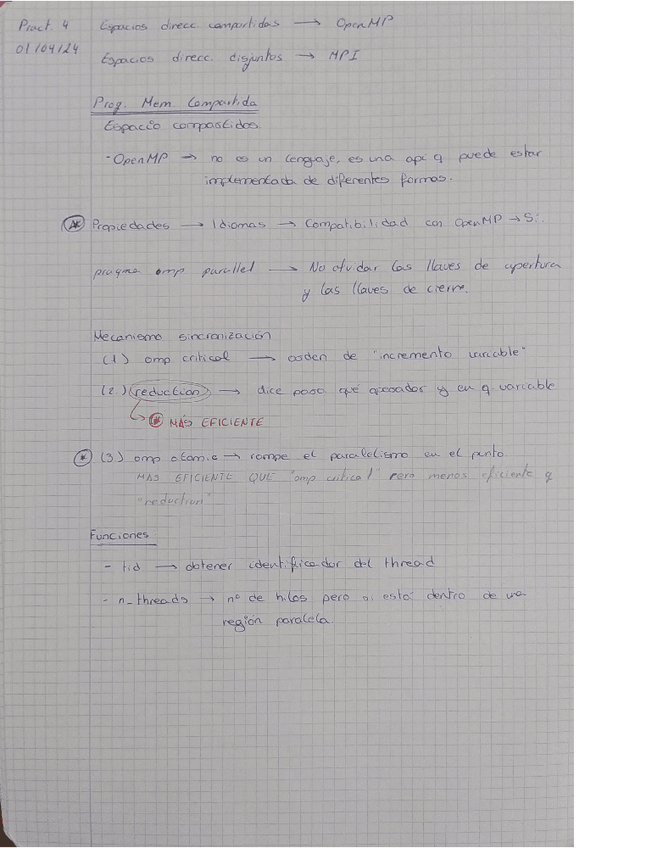 Pract. 4 Espacios direcc compartidas → OpenMP
01/04/24
Espacios direcc. disjuntos → MPI
Prog. Mem Compartida
Espacio compartidos.
- OpenMP → no es un lenguaje, es una api q puede estar
implementada de diferentes formas.
Propiedades → Idiomas → Compatibilidad con OpenMP → Sí.
pragma omp parallel → No olvidar las llaves de apertura
y las llaves de cierre.
Mecanismo sincronización
(1) omp critical → orden de "incremento variable"
(2) reduction → dice para qué operador y en q variable
MÁS EFICIENTE
(3) omp atomic → rompe el paralelismo en el punto.
MAS EFICIENTE QUE "omp critical" pero menos eficiente q
"reduction"
Funciones
- tid → obtener identificador del thread
- n_threads → nº de hilos pero si está dentro de una
región paralela.